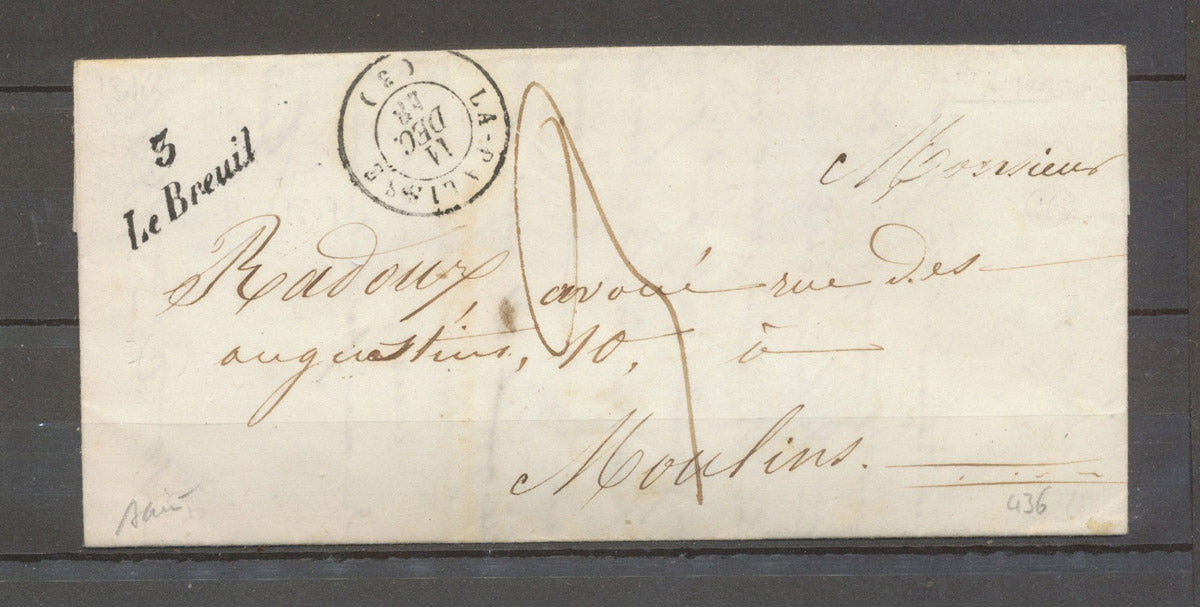 3
Le Breuil
LA-PALISSE
(3)
11
DEC.
Monsieur
Radoux, avoué rue des
augustins, 10, à
Moulins.
436